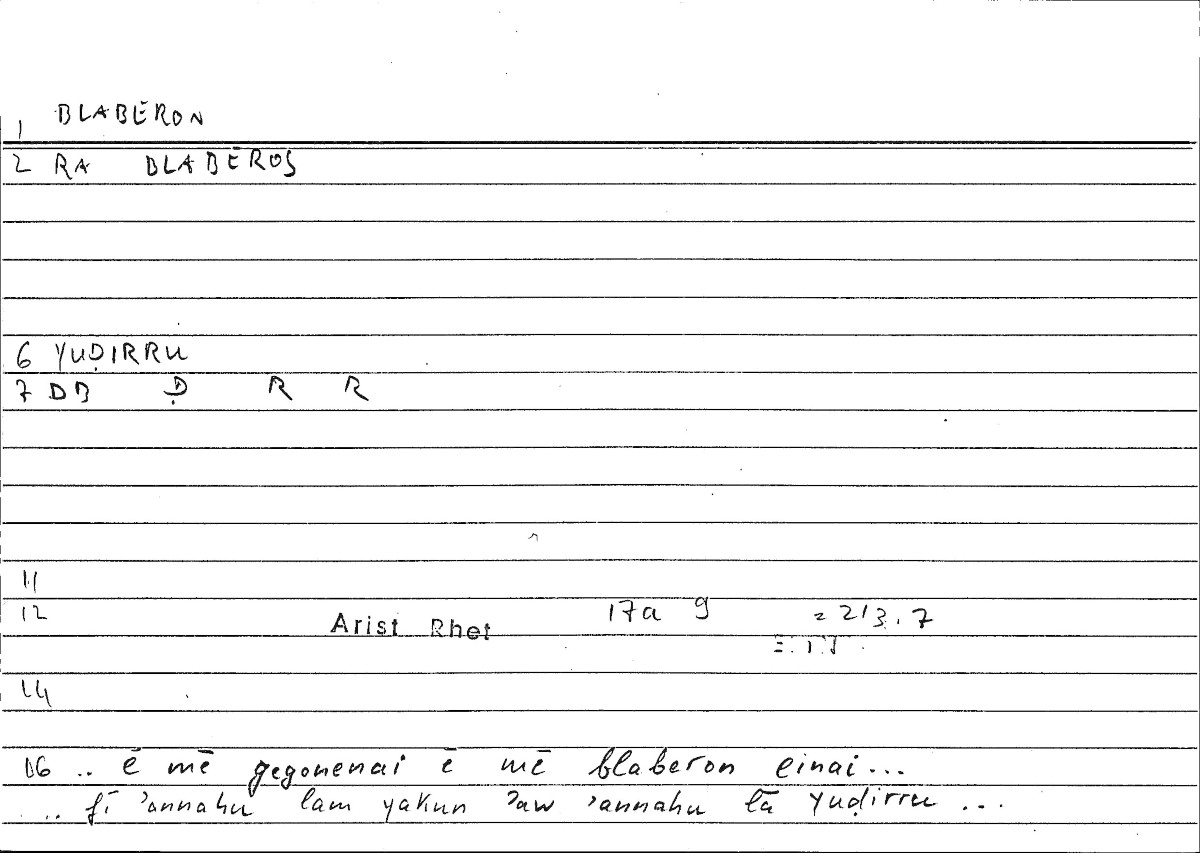 1 BLABERON
2 RA BLABĒROS
6 YUḌIRRU
7 DB Ḍ R R
11
12 Arist Rhet 17a 9 = 213.7
14
06 .. ē mē gegonenai ē mē blaberon einai...
.. fī ʾannahu lam yakun ʾaw ʾannahu lā yuḍirru ...